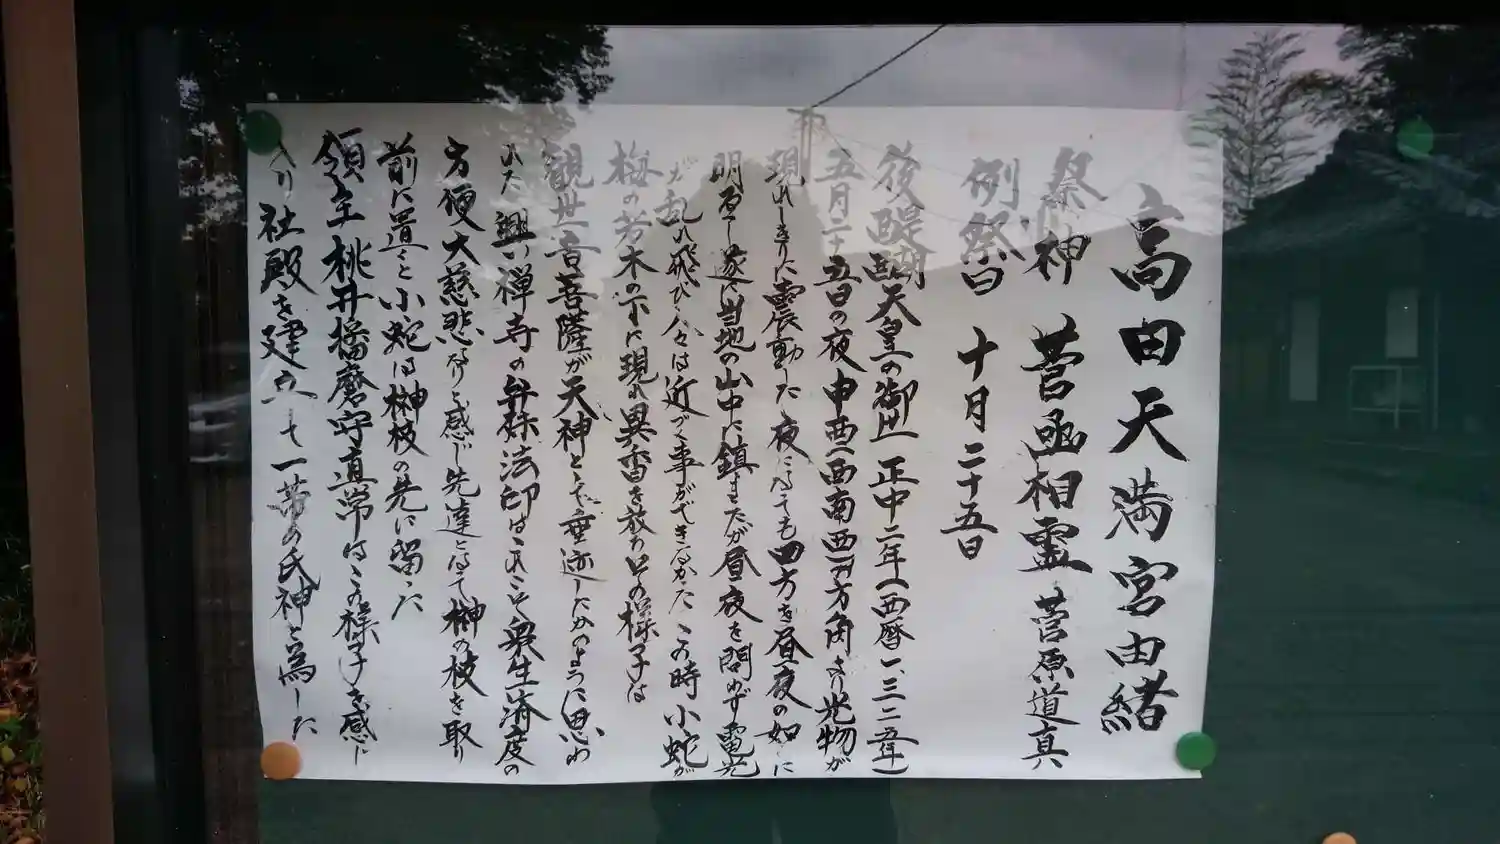 高田天満宮由緒
祭神 菅丞相霊 菅原道真
例祭日 十月二十五日
後醍醐天皇の御世 正中二年(西暦一、三二五年)
五月二十五日の夜 申酉(西南西)の方角より光物が
現れしきりに震動した 夜になても四方を昼夜の如くに
明るし 遂に当地の山中に鎮またが昼夜を問わず電光
が乱れ飛び 人々は近づく事ができなかた この時 小蛇が
梅の若木の下に現れ異香を放ち その様子は
観世音菩薩が天神として垂迹したかのように思わ
れた 興禅寺の弁栄法印はこれこそ衆生済度の
方便 大慈悲なりと感じ 先達となて榊の枝を取り
前に置くと小蛇は榊枝の先に留た
領主 桃井播磨守直常はこの様子を感じ
入り 社殿を建立して一帯の氏神と為した